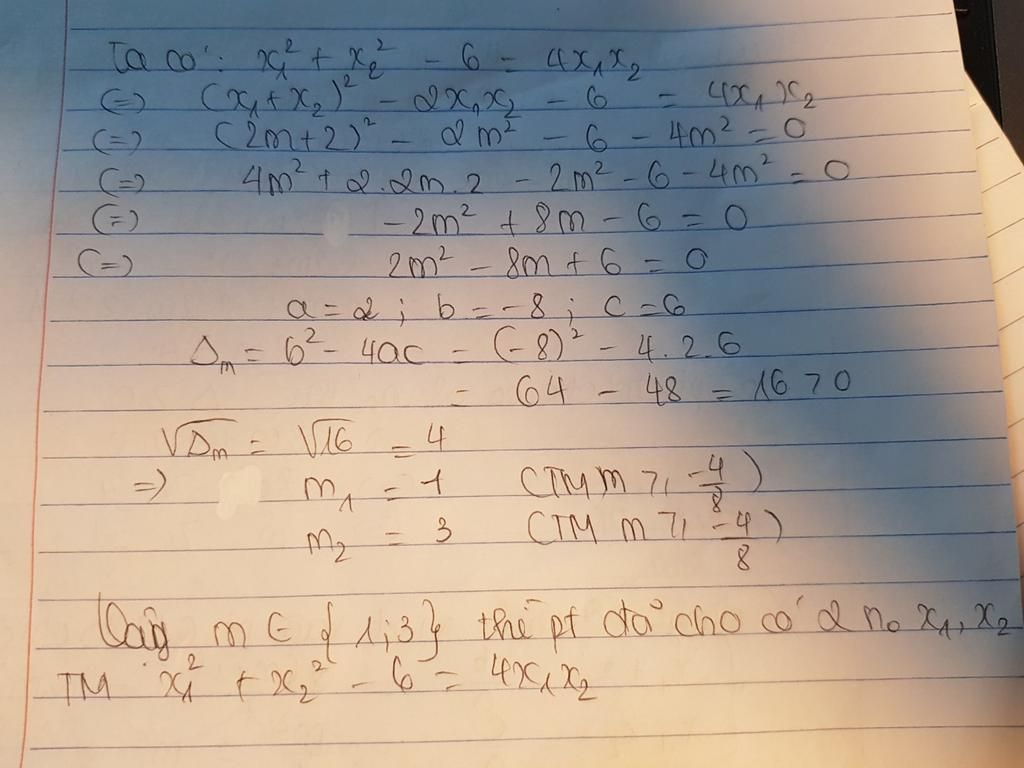 Ta có: x₁² + x₂² - 6 = 4x₁x₂
(=) (x₁+x₂)² - 2x₁x₂ - 6 = 4x₁x₂
(=) (2m+2)² - 2m² - 6 - 4m² = 0
(=) 4m² + 2.2m.2 - 2m² - 6 - 4m² = 0
(=) -2m² + 8m - 6 = 0
(=) 2m² - 8m + 6 = 0
a = 2 ; b = -8 ; c = 6
Δm = b² - 4ac = (-8)² - 4.2.6
= 64 - 48 = 16 > 0
√Δm = √16 = 4
=) m₁ = 1 (TM m ≥ -4/8)
m₂ = 3 (TM m ≥ -4/8)
Vậy m ∈ {1;3} thì pt đã cho có 2 no x₁, x₂
TM x₁² + x₂² - 6 = 4x₁x₂